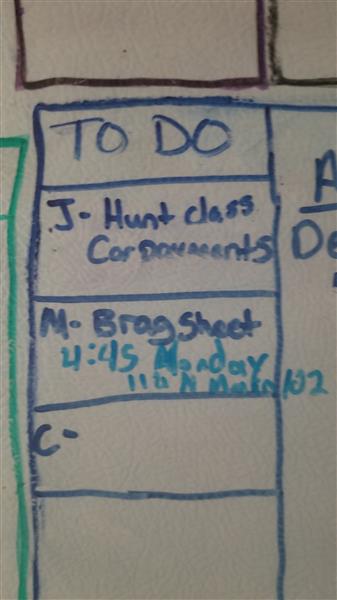 TO DO
J- Hunt class
Car Payments
M- Brag Sheet
4:45 Monday
N Main 102
C-
A
De